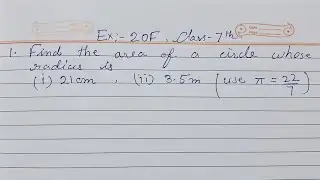 Ex:- 20F, Class- 7th
1. Find the area of a circle whose
radius is
(i) 21cm , (ii) 3.5m (use π = 22/7)